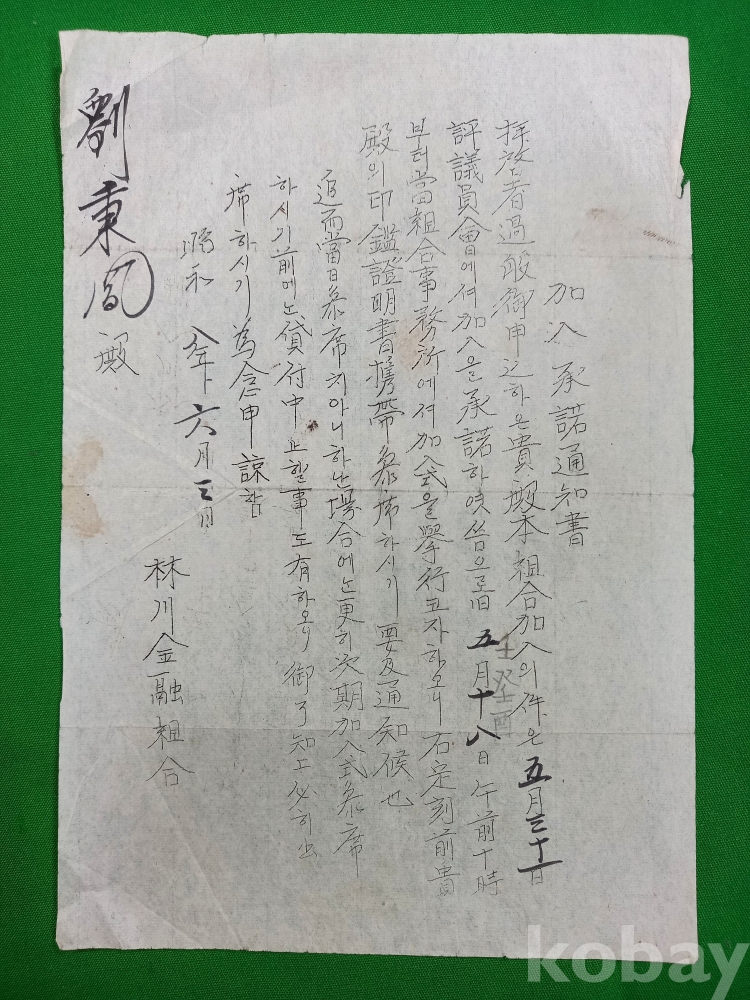 加入承諾通知書
拜啓者過般御申込하온貴殿本組合加入의件은五月三十一日
評議員會에셔加入을承諾하엿씀으로旧五月十八日午前十時
壬癸酉
부터當組合事務所에셔加入式을擧行코자하오니右定刻前貴
殿의印鑑證明書携帶參席하시기要及通知候也
追而當日參席치아니하난場合에는更히次期加入式參席
하시기前에는貸付中止할事도有하오니御了知工必히出
席하시기爲念申諒함
昭和八年六月三日
林川金融組合
劉秉 殿
kobay